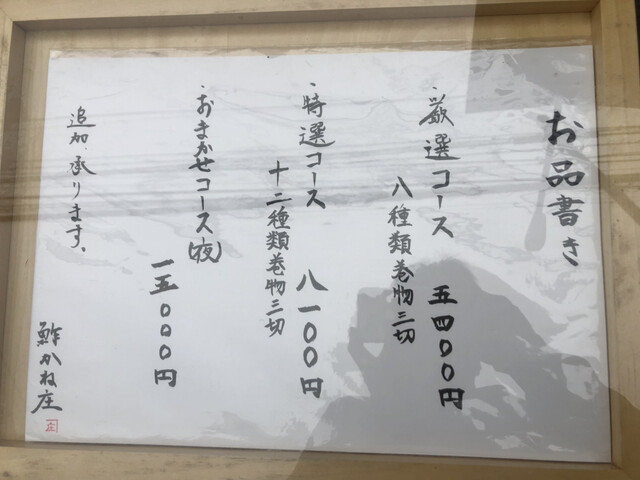 お品書き
・厳選コース 五四〇〇円
八種類巻物三切
・特選コース 八一〇〇円
十二種類巻物三切
・おまかせコース(夜)
一五〇〇〇円
追加承ります。
鮓かね庄
庄